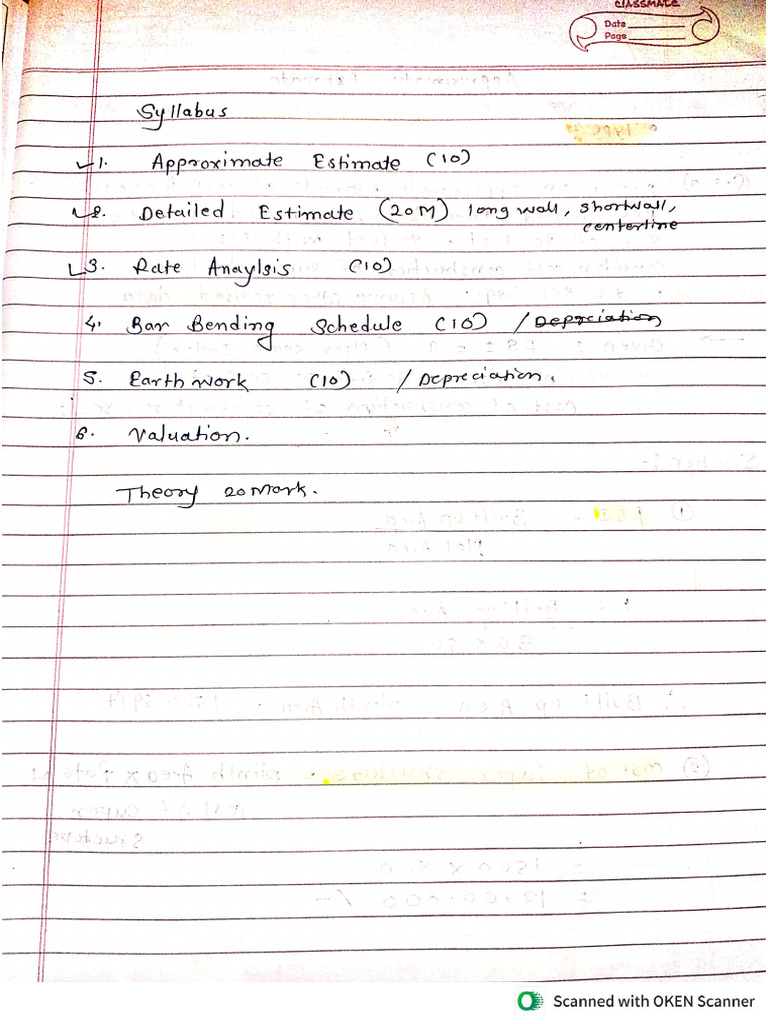 classmate
Date
Page
Syllabus
1. Approximate Estimate (10)
2. Detailed Estimate (20M) long wall, shortwall,
centerline
3. Rate Anaylsis (10)
4. Bar Bending Schedule (10) / Depreciation
5. Earthwork (10) / Depreciation.
6. Valuation.
Theory 20 Mark.
Scanned with OKEN Scanner